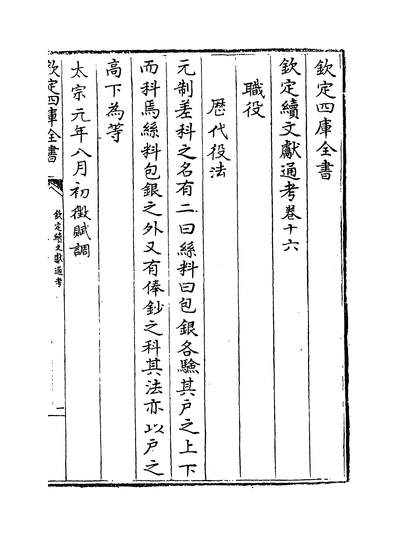 欽定四庫全書
欽定續文獻通考卷十六
職役
歷代役法
元制差科之名有二曰絲料曰包銀各驗其戶之上下
而科焉絲料包銀之外又有俸鈔之科其法亦以戶之
高下為等
太宗元年八月初徵賦調
欽定四庫全書
欽定續文獻通考
一